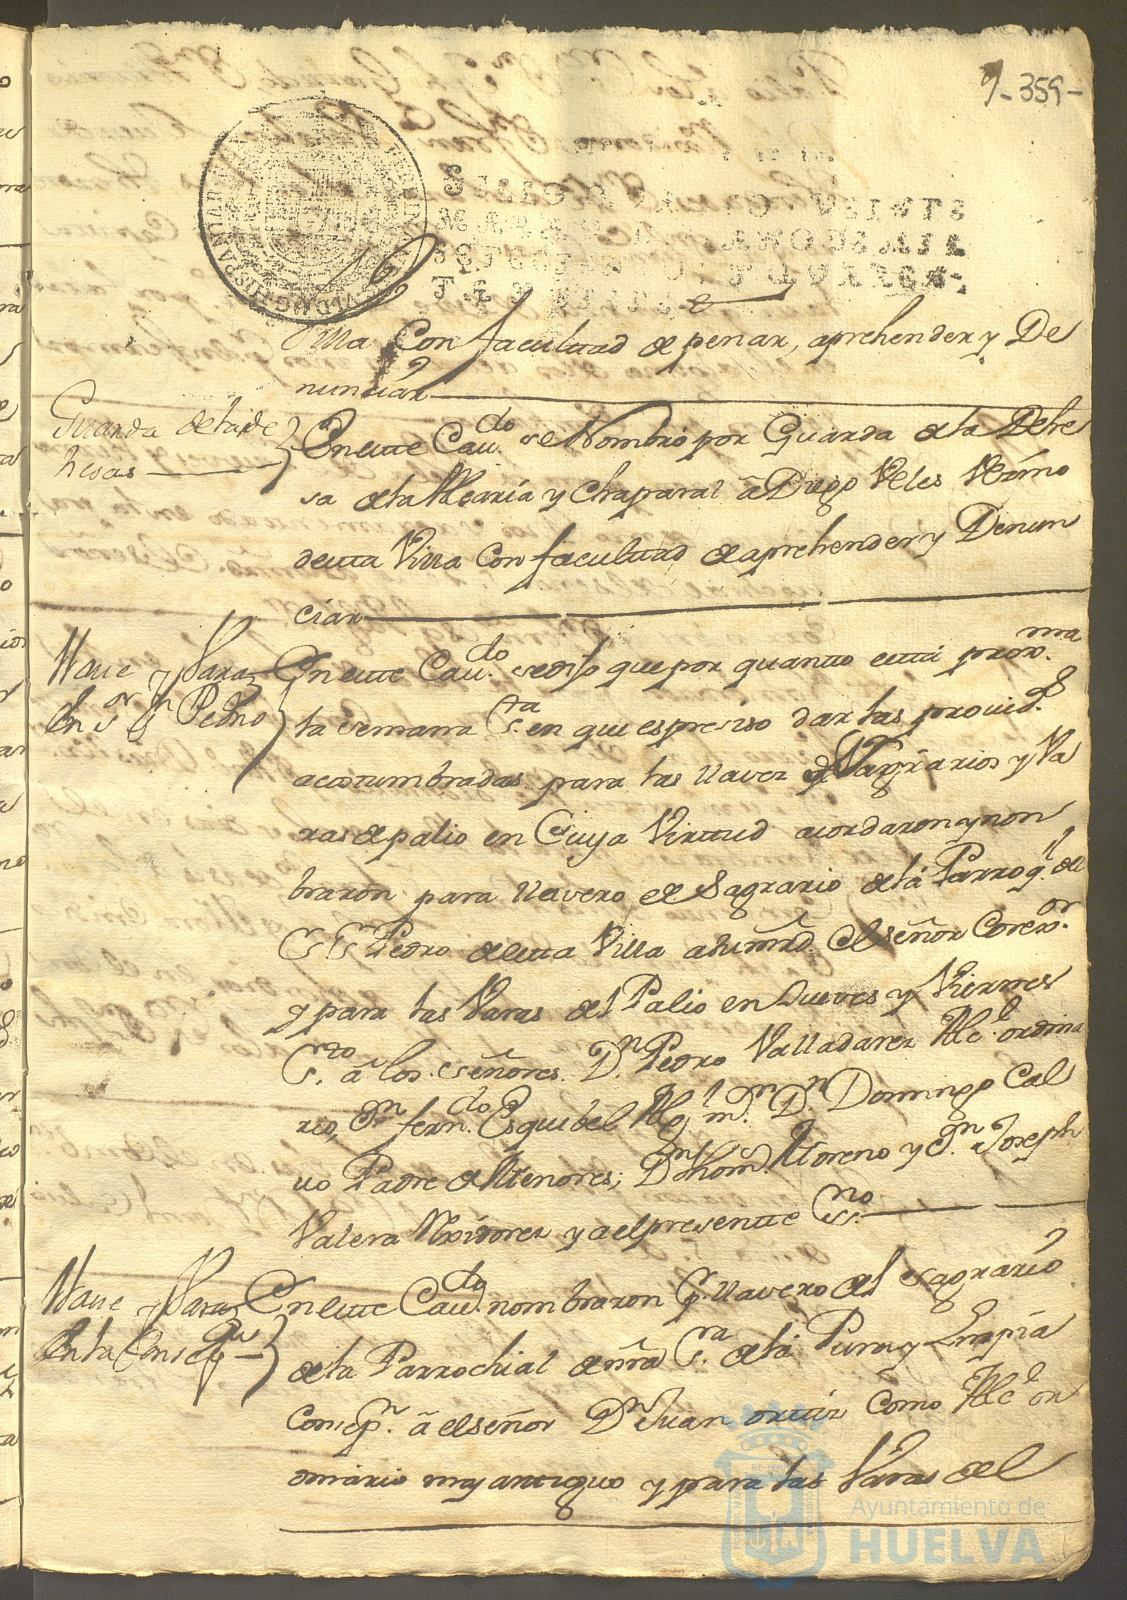 9-359-
Villa Con facultad de penar, aprehender y De
nunciar
Guarda de la de
hesas
En este Caudo. se Nombró por Guarda de la Dehe
sa de la Alcaria y Chaparal â Diego Veles Vezino
de esta Villa Con facultad de aprehender y Denun
ciar
Llaue y Varas
En Sor. Sn Pedro
En este Caudo. se dijo que por quanto está proxma.
la semana Sta. en que es presiso dar las prouids.
acostumbradas para las llaves de Sagrarios y Va
ras de palio en Cuya Virtud acordaron y nom
braron para llavero de el Sagrario de la Parroql. de
Sr. Sn Pedro de esta Villa a su mrd. el señor Correxor.
y para las Varas del Palio en Jueves y Viernes
Sto. â los señores Dn. Pedro Valladares Alce. ordina
rio, Dn ferndo. Esquibel Algl. mr. Dn. Domingo Cal
uo Padre de Menores, Dn thoms. Moreno y Dn. Joseph
Valera Rexidores y a el presente Ssno.
Llaue y Varas
En la Consepn
En este Caudo. nombraron pr. llavero del sagrario
de la Parrochial de nra Sra. de la Pura y Limpia
Consepn. â el señor Dn Juan ortiz como Alce. or
dinario mas antiguo y para las Varas del
Ayuntamiento de
HUELVA